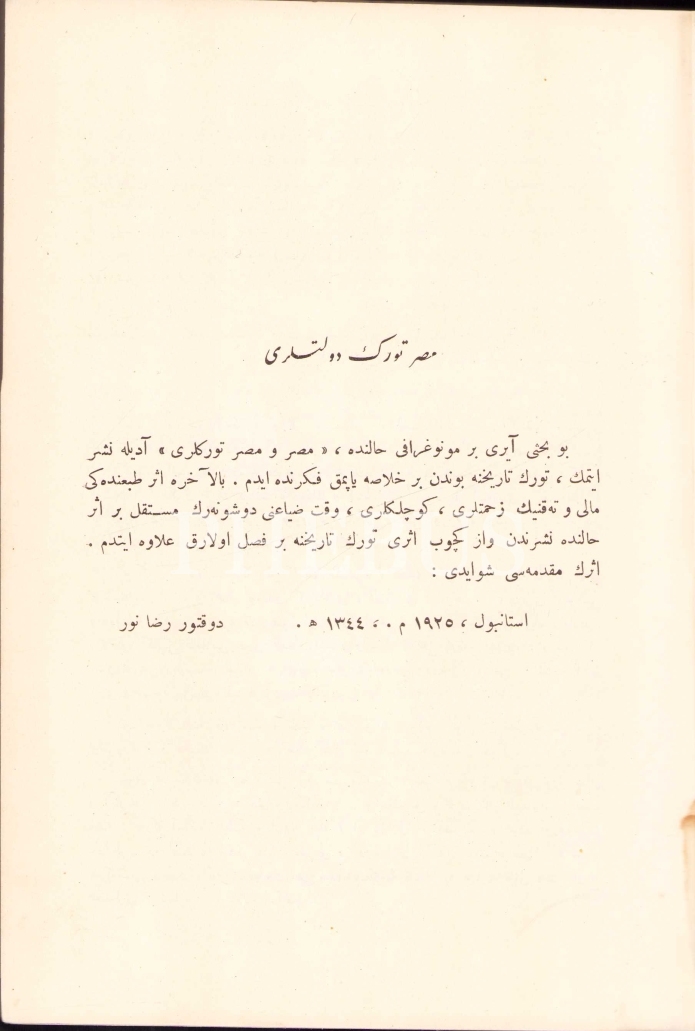 مصر تورك دولتلری
بو بحثی آیری بر مونوغرافی حالنده ، « مصر و مصر توركلری » آدیله نشر
ایتمك ، تورك تاریخنه بوندن بر خلاصه یاپمق فكرنده ایدم . بالآخره اثر طبعنده‌كی
مالی و ته‌قنیك زحمتلری ، كوچلكلری ، وقت ضیاعنی دوشونه‌رك مستقل بر اثر
حالنده نشرندن واز كچوب اثری تورك تاریخنه بر فصل اولارق علاوه ایتدم .
اثرك مقدمه‌سی شوایدی :
استانبول ، ١٩٢٥ م . ، ١٣٤٤ ه . دوقتور رضا نور